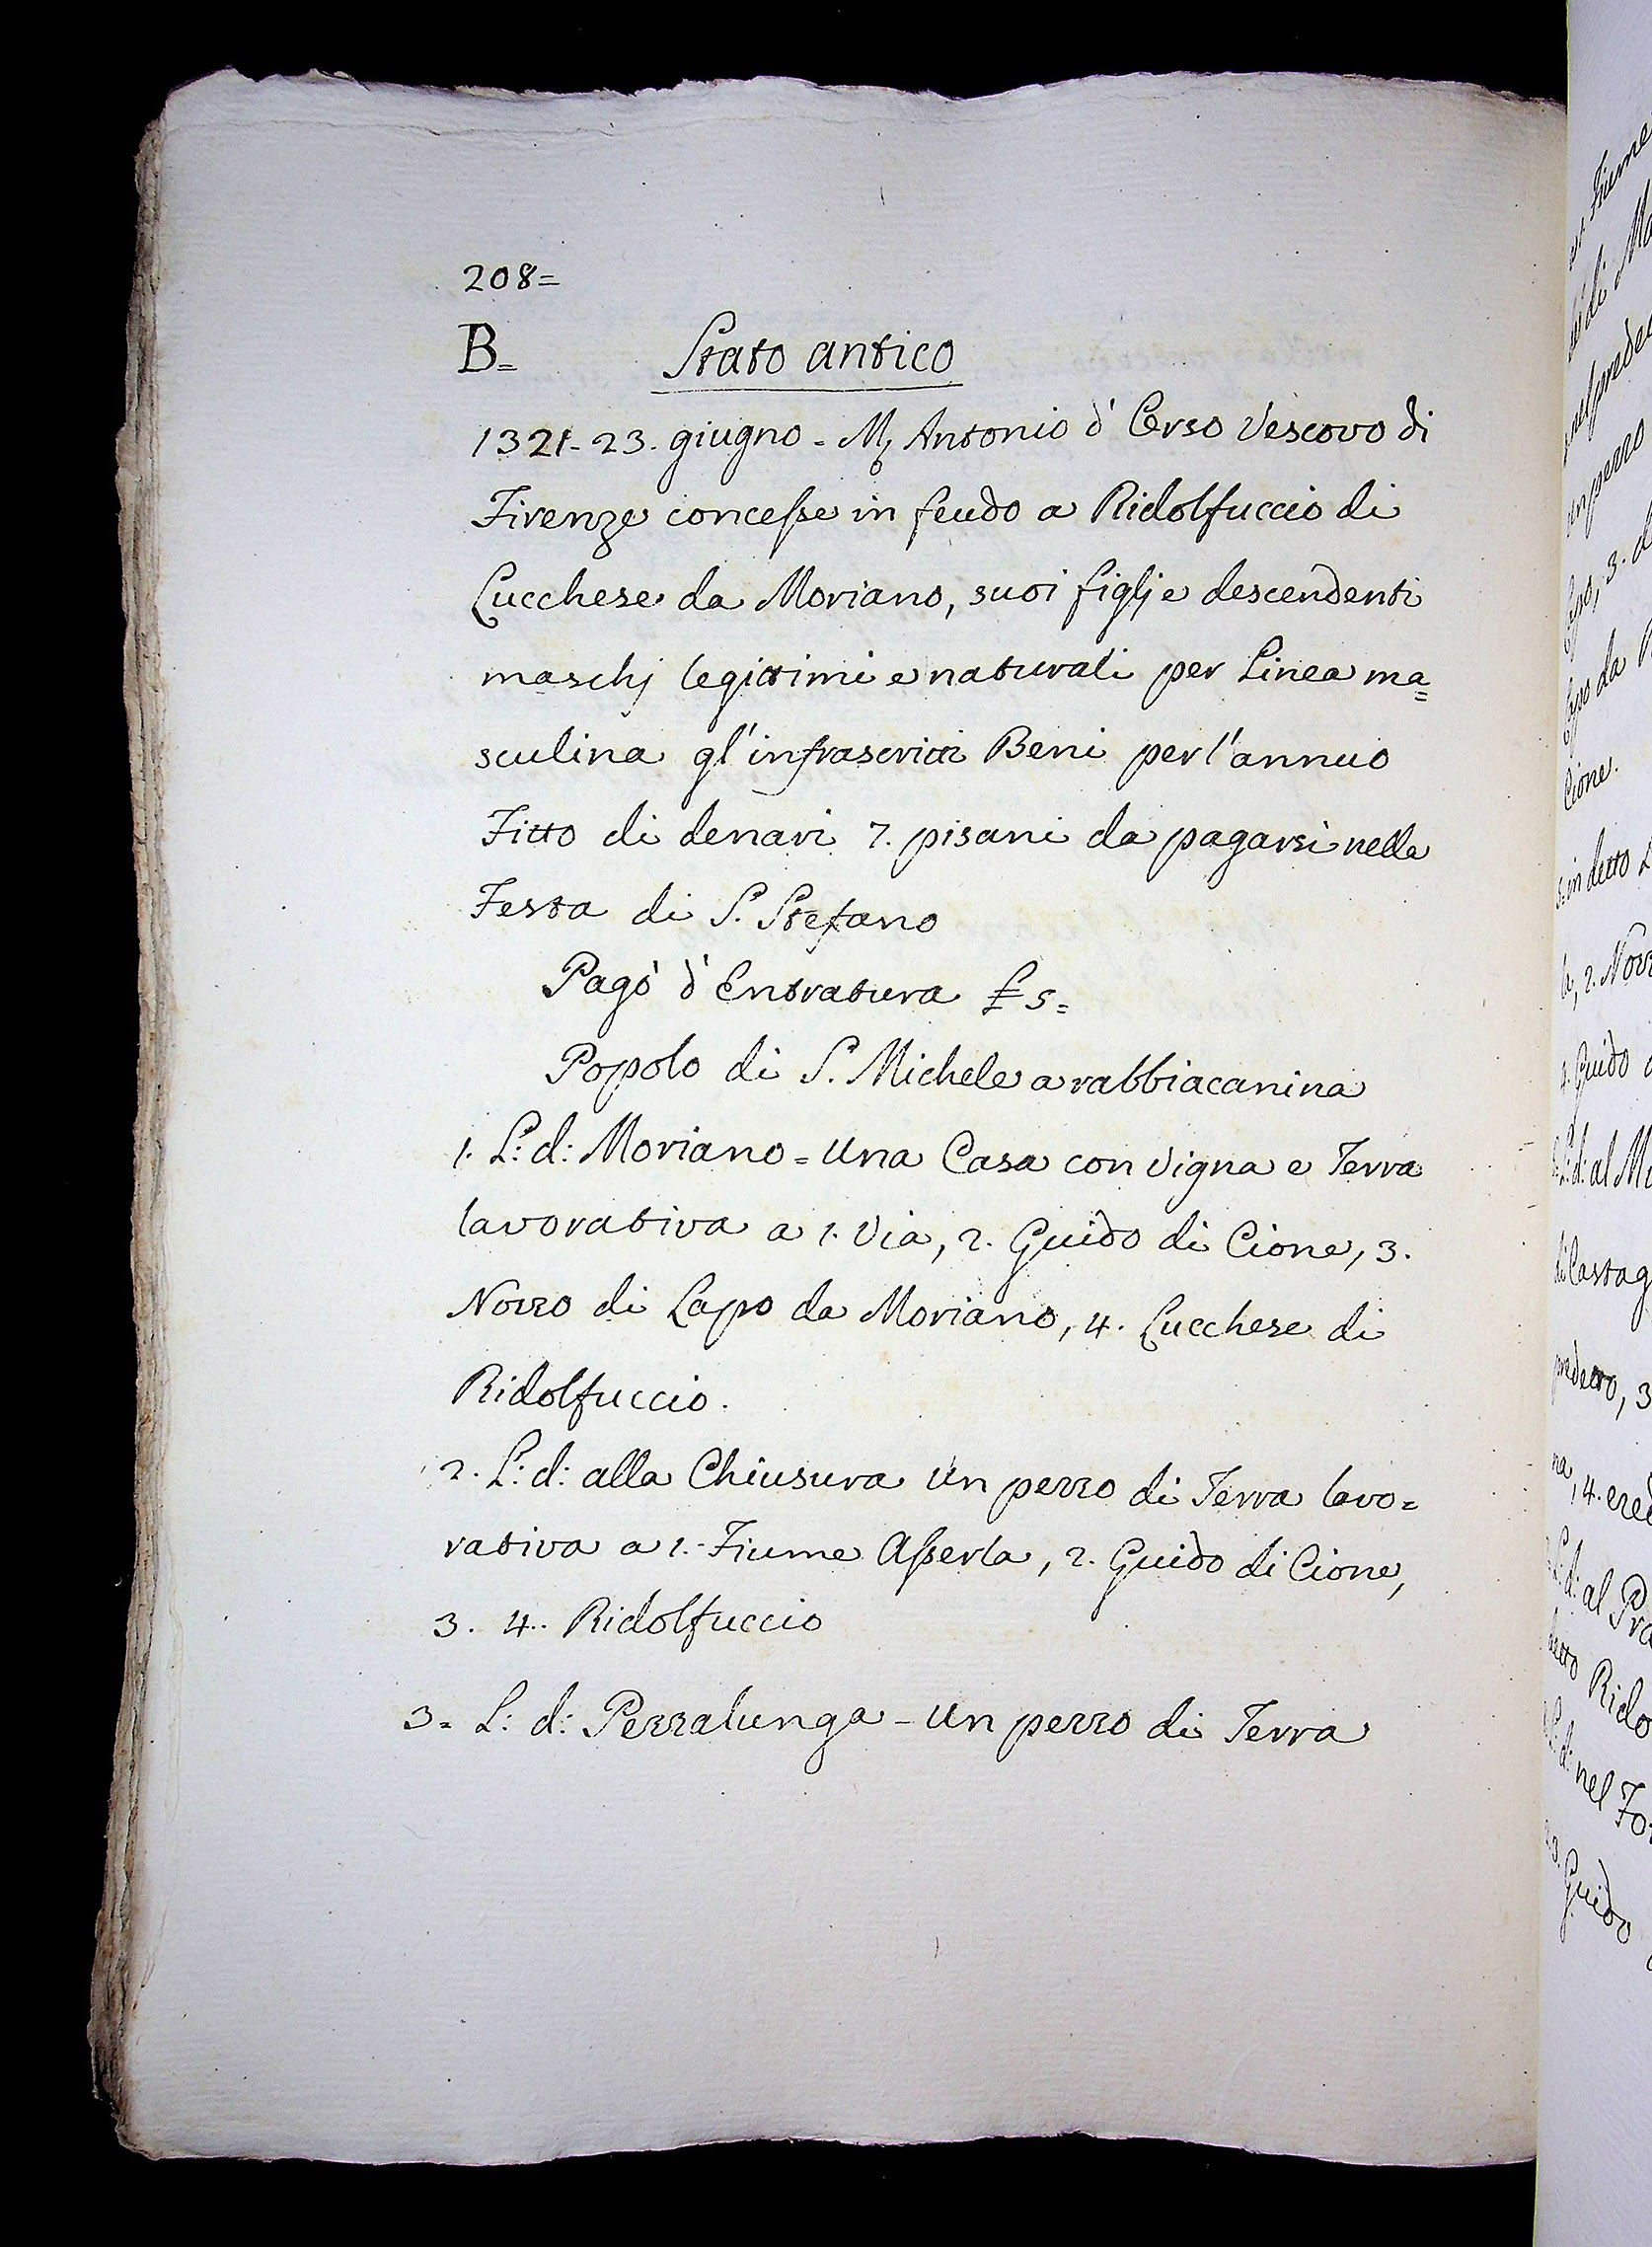 208=
B= Stato antico
1321-23. giugno = M. Antonio d'Orso Vescovo di
Firenze concesse in feudo a Ridolfuccio di
Lucchese da Moriano, suoi figlj e descendenti
maschj legittimi e naturali per Linea ma=
sculina gl'infrascritti Beni per l'annuo
Fitto di denari 7. pisani da pagarsi nella
Festa di S. Stefano
Pagò d'Entratura £ 5=
Popolo di S. Michele a rabbiacanina
1. L: d: Moriano = Una Casa con vigna e Terra
lavorativa a 1. Via, 2. Guido di Cione, 3.
Nozzo di Lapo da Moriano, 4. Lucchese di
Ridolfuccio.
2. L: d: alla Chiusura Un pezzo di Terra lavo=
rativa a 1. Fiume Asserla, 2. Guido di Cione,
3. 4. Ridolfuccio
3= L: d: Pezzalunga - Un pezzo di Terra
Fiume
di
Cione.
in detto
2.
Guido
d: al
3
4.
d: al
d: nel
Guido